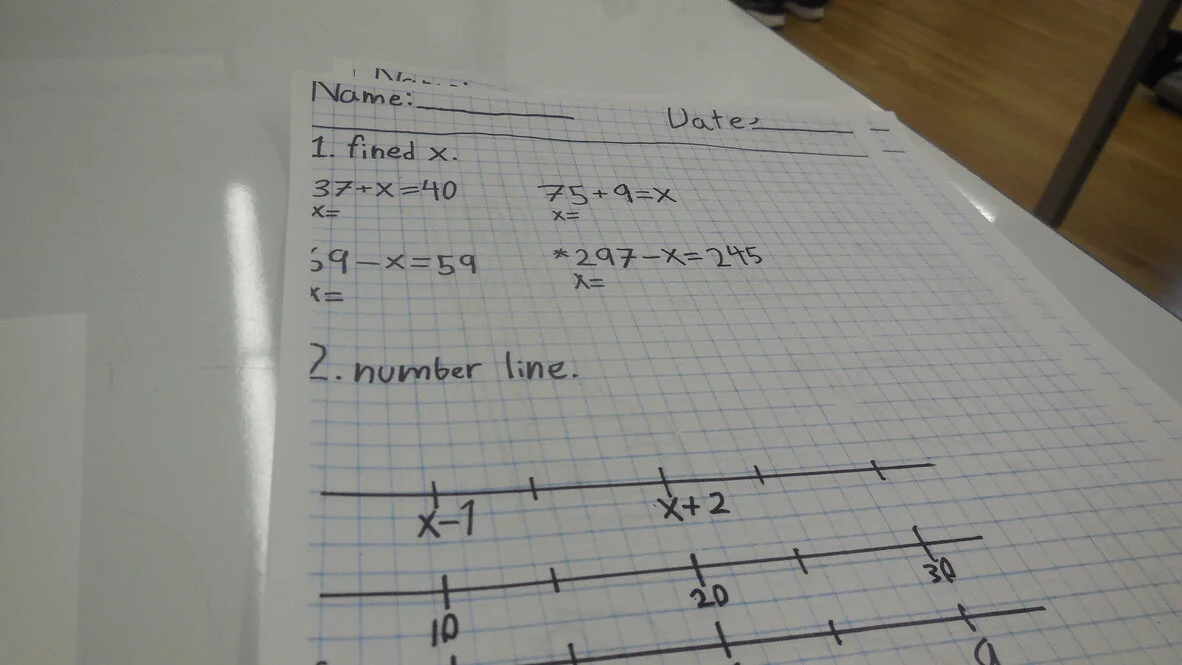 Name:
Date:
1. fined x.
37+x=40 75+9=x
x= x=
59-x=59 *297-x=245
x= x=
2. number line.
x-1 x+2
10 20 30